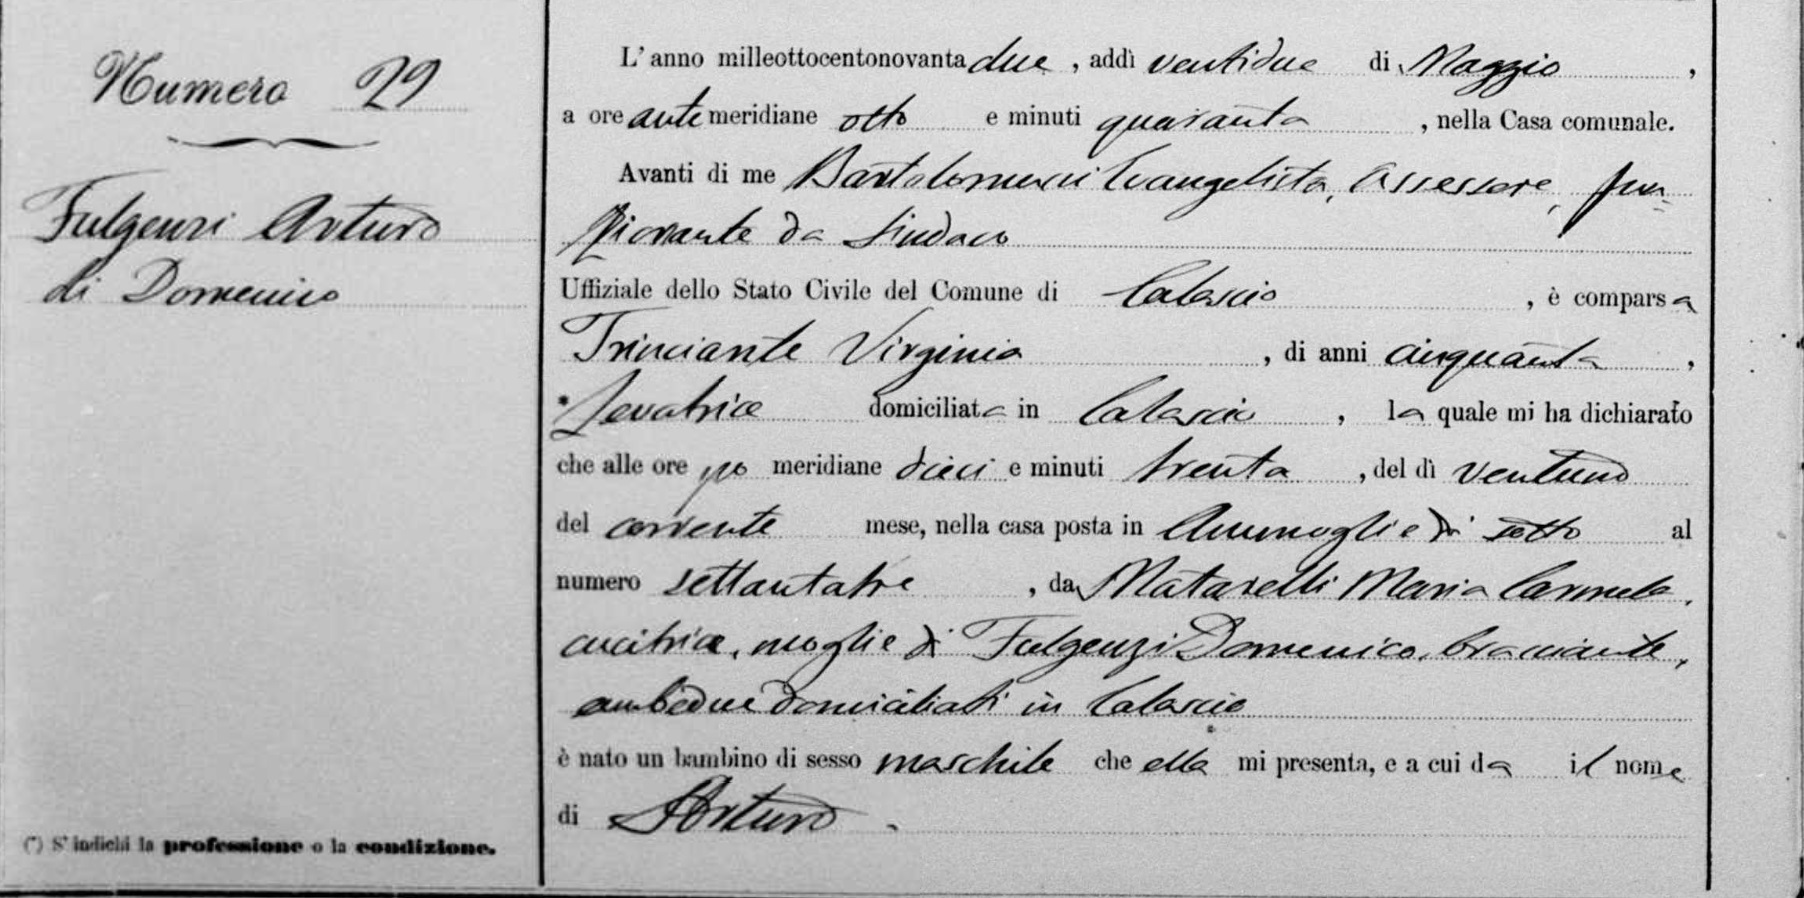 Numero 29
Fulgenzi Arturo
di Domenico
(*) S'indichi la professione o la condizione.
L'anno milleottocentonovantadue, addì ventidue di Maggio,
a ore antemeridiane otto e minuti quaranta, nella Casa comunale.
Avanti di me Bartolomucci Evangelista, Assessore, fun-
zionante da Sindaco
Uffiziale dello Stato Civile del Comune di Calascio, è comparsa
Trinciante Virginia, di anni cinquanta,
*Levatrice domiciliata in Calascio, la quale mi ha dichiarato
che alle ore po meridiane dieci e minuti trenta, del dì ventuno
del corrente mese, nella casa posta in di sotto al
numero settantatre, da Matarelli Maria Carmela,
cucitrice, moglie di Fulgenzi Domenico, bracciante,
ambedue domiciliati in Calascio
è nato un bambino di sesso maschile che ella mi presenta, e a cui da il nome
di Arturo.